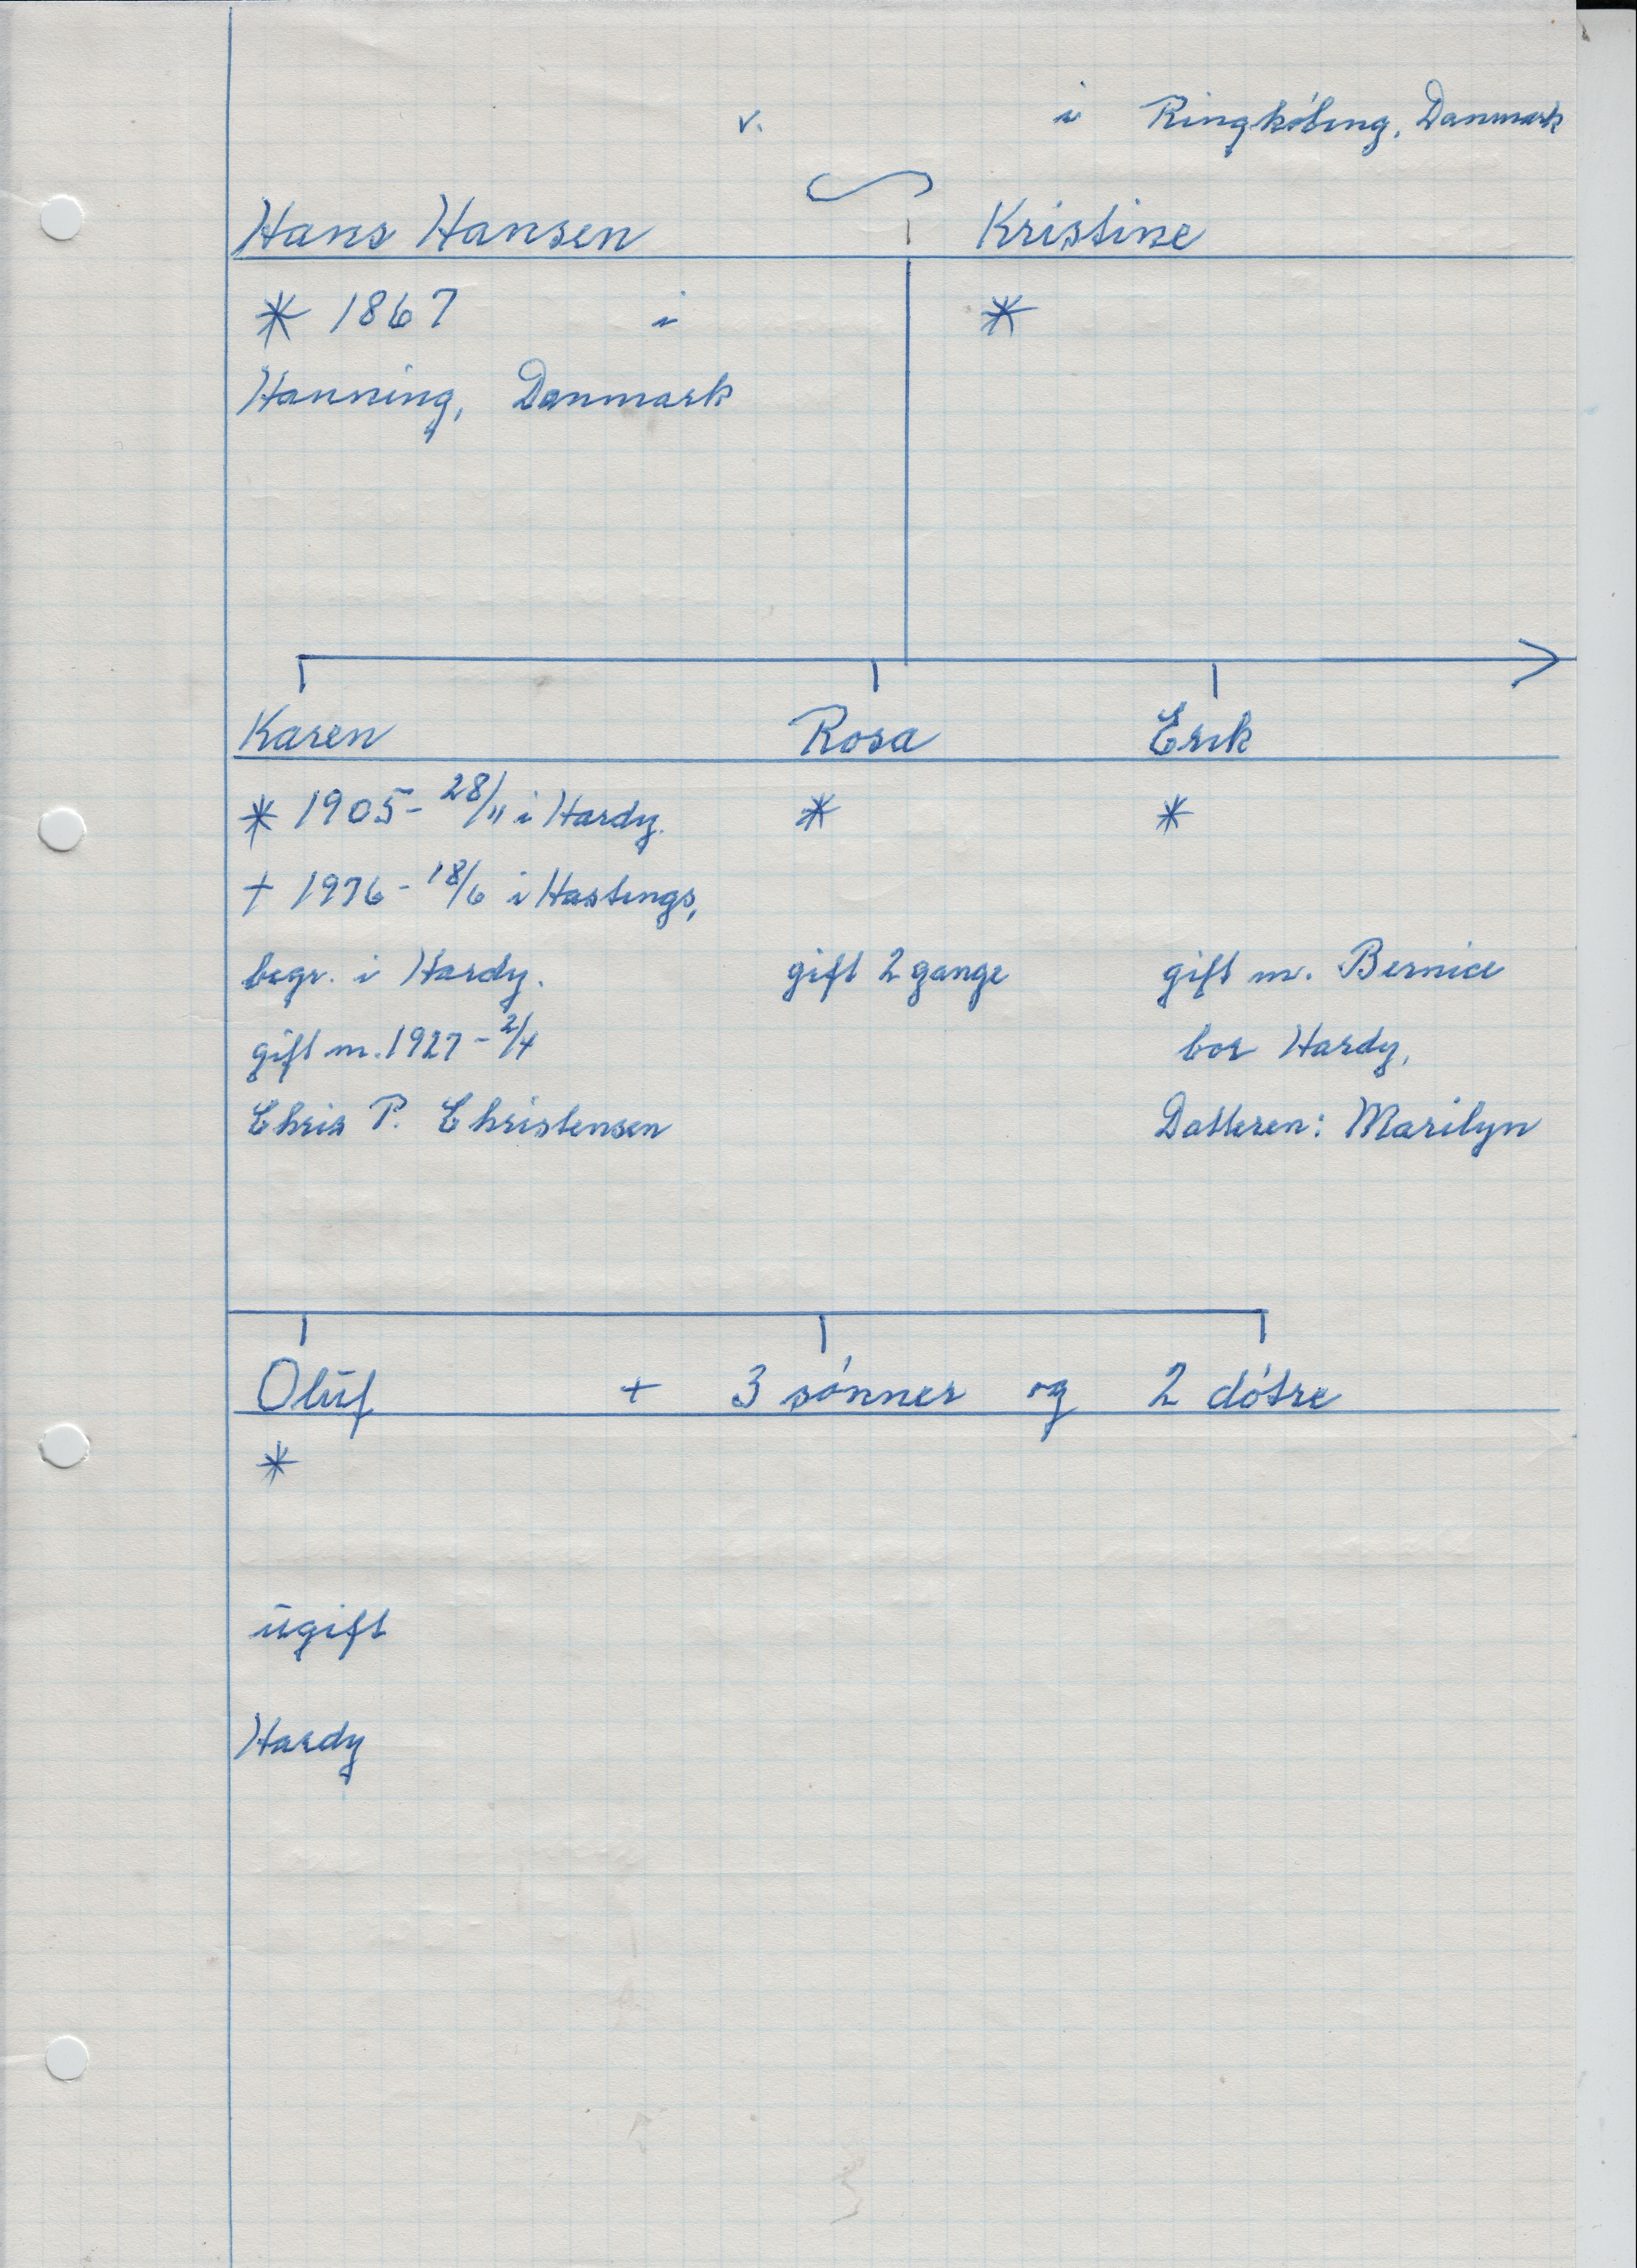 v. i Ringkóbing, Danmark
Hans Hansen Kristine
* 1867 i *
Hanning, Danmark
Karen Rosa Erik
* 1905 - 28/11 i Hardy. * *
+ 1976 - 18/6 i Hastings,
begr. i Hardy. gift 2 gange gift m. Bernice
gift m. 1927 - 2/4 bor Hardy,
Chris P. Christensen Datteren: Marilyn
Olūf + 3 sónner og 2 dótre
*
ūgift
Hardy